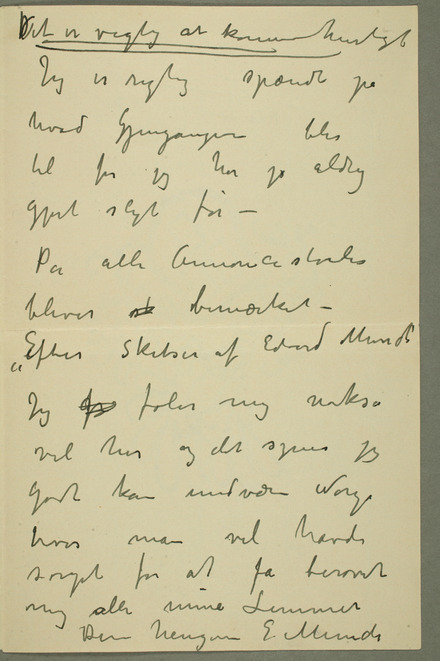 Det er vigtig at komme hurtigt
Jeg er rigtig spændt på
hvad Gjengangere blir
til for jeg har jo aldrig
gjort sligt før —
På alle Annoncestole
bliver bemærket —
„Efter Skitser af Edvard Munch"
Jeg føler mig nokså
vel her og det synes jeg
godt kan undvære Norge
hvor man vel havde
sørget for at få berøvet
mig alle mine Lemmer
Din hengivne E. Munch